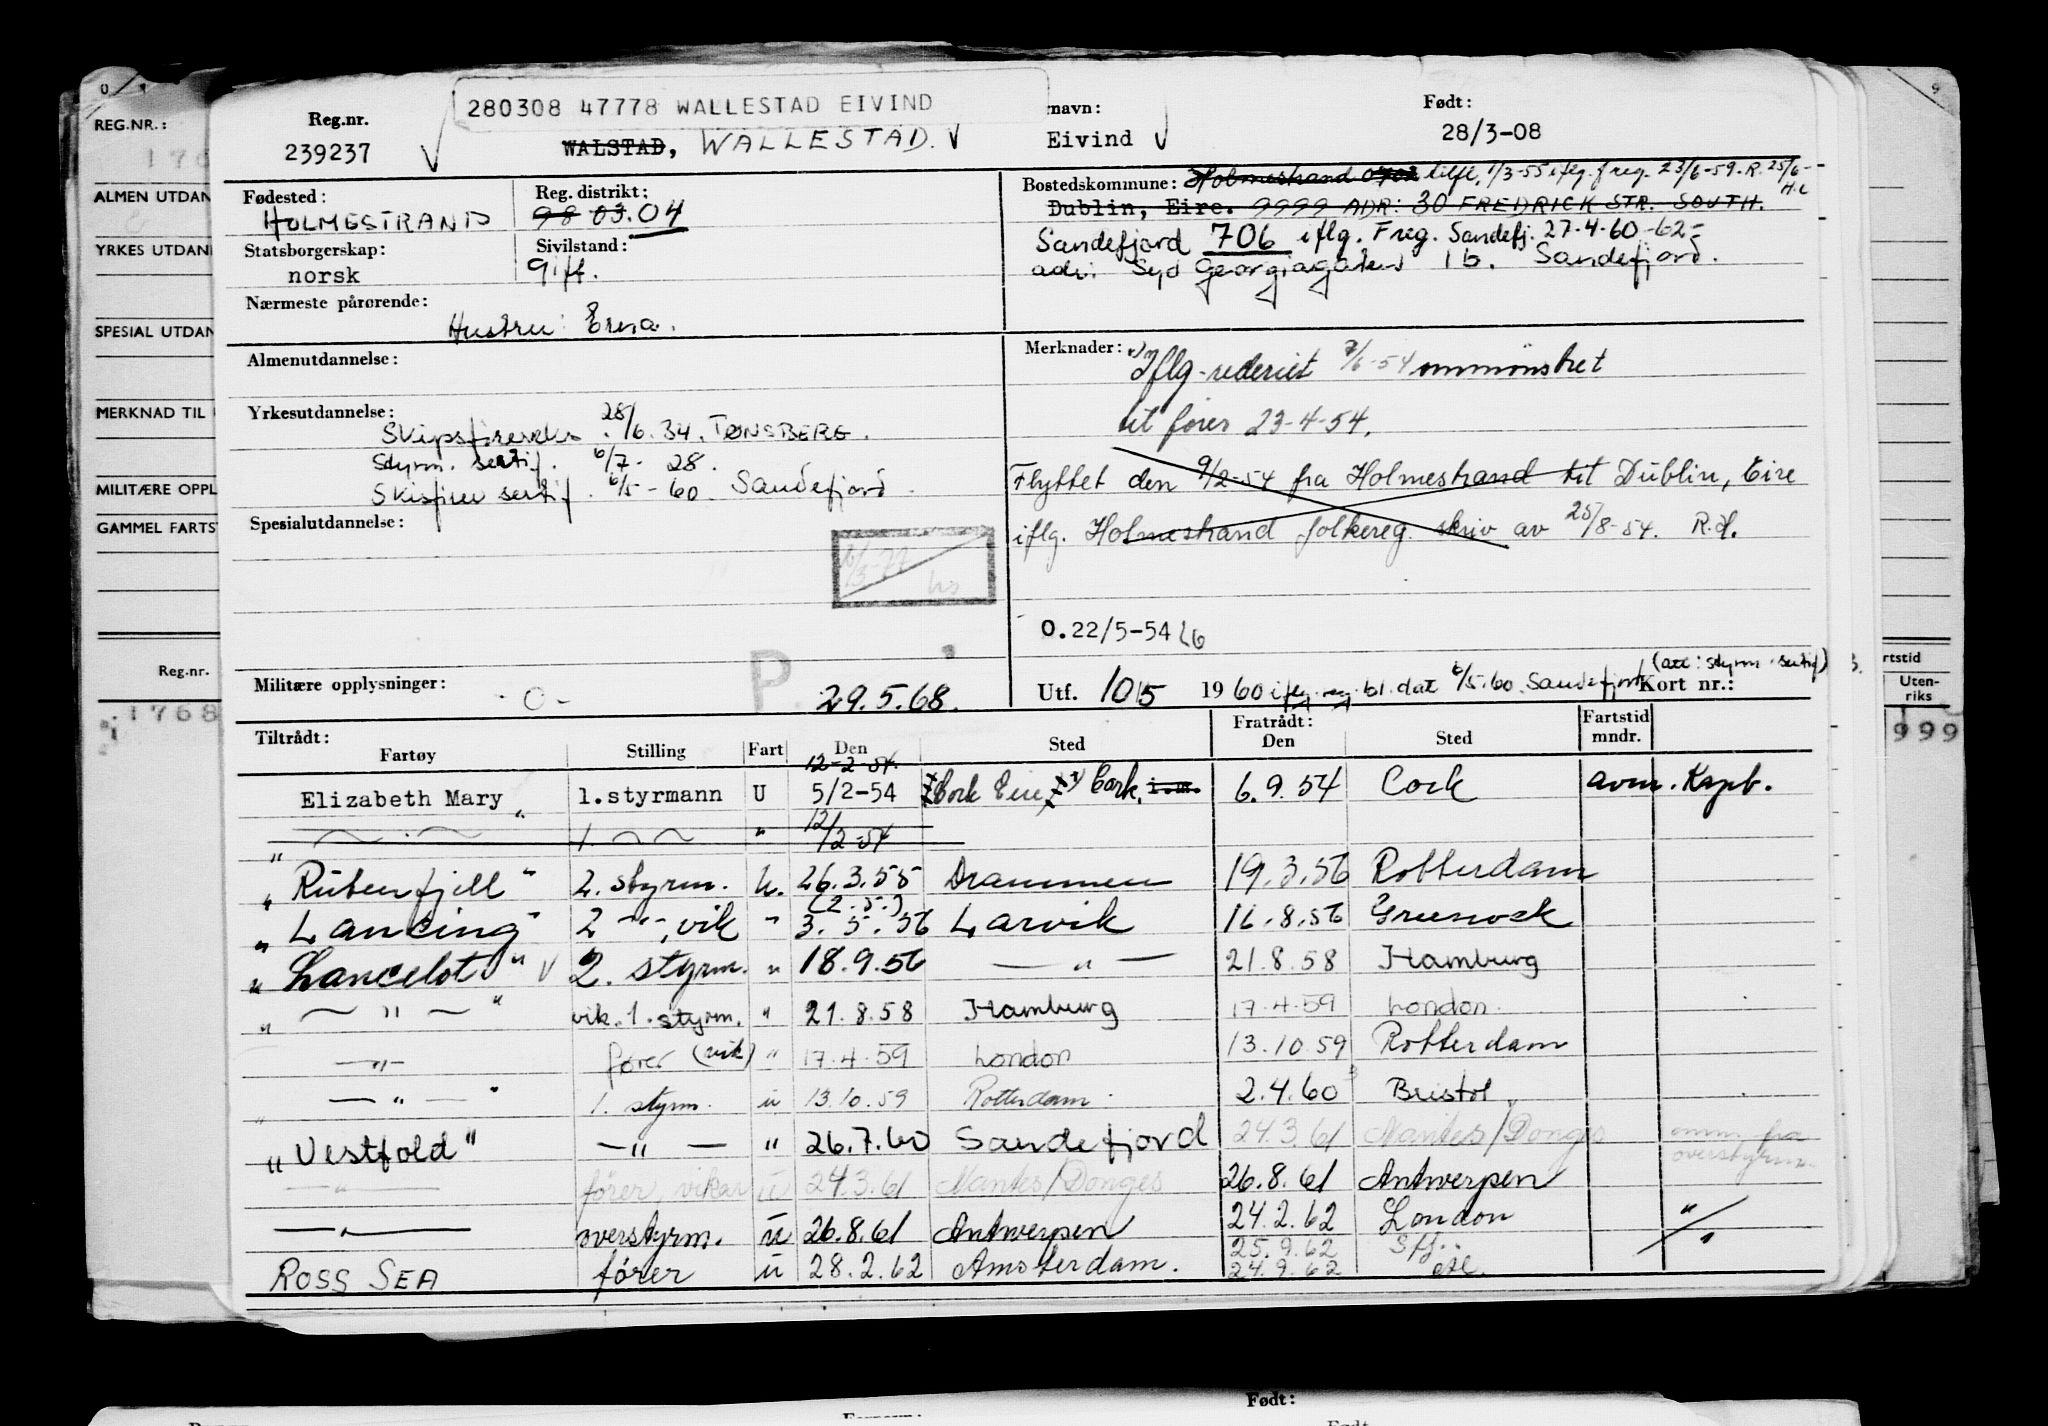 280308 47778 WALLESTAD EIVIND
Reg.nr.
239237
WALSTAD, WALLESTAD.
rnavn:
Eivind
Født:
28/3-08
Fødested:
HOLMESTRAND
Reg. distrikt:
98 03.04
Statsborgerskap:
norsk
Sivilstand:
Gift.
Nærmeste pårørende:
Hustru: Erna.
Bostedskommune: Holmestrand 0702 tilfl. 1/3-55 iflg. freg. 23/6-59. R. 25/6-
H.L
Dublin, Eire. 9999 ADR: 30 FREDRICK STR. SOUTH.
Sandefjord 706 iflg. Freg. Sandefj. 27-4-60-62-
adr: Syd Georgiagaten 1b. Sandefjord.
Almenutdannelse:
Yrkesutdannelse:
28/6.34. TØNSBERG.
Styrm. sertif. 6/7-28.
sertif. 6/5-60. Sandefjord.
Spesialutdannelse:
Militære opplysninger:
-0-
P
29.5.68.
Merknader: Iflg. rederiet 7/6-54 ommønstret
til fører 23-4-54.
Flyttet den 9/2-54 fra Holmestrand til Dublin, Eire
iflg. Holmestrand folkereg. skriv av 25/8-54. R.H.
O.22/5-54
(att: styrm. sertif)
Utf. 1015 1960 iflg. reg. bl. dat 6/5.60. Sandefjord Kort nr.:
Tiltrådt:
Fartøy Stilling Fart Den Sted
Fratrådt:
Den Sted
Fartstid
mndr.
12-2-54.
Elizabeth Mary 1.styrmann U 5/2-54 Cork Eire Cork, 6.9.54 Cork avm. Kapt.
" 1. " 12/2-54
"Rubenfjell" 2. styrm. U. 26.3.55 Drammen 19.3.56 Rotterdam
(2.5.)
"Lancing" 2 -"-, vik " 3.5.56 Larvik 16.8.56 Greenock
"Lancelot" 2. styrm. " 18.9.56 — " — 21.8.58 Hamburg
" — " — " vik. 1. styrm. " 21.8.58 Hamburg 17.4.59 London.
—"— fører (vik) " 17.4.59 London 13.10.59 Rotterdam
" — " — " 1. styrm. u 13.10.59 Rotterdam. 2.4.60 Bristol
"Vestfold" — " — " 26.7.60 Sandefjord 24.3.61 Nantes/Donges omm. fra
overstyrm.
—"— fører, vikar u 24.3.61 Nantes/Donges 26.8.61 Antwerpen
—"— overstyrm. u 26.8.61 Antwerpen 24.2.62 London "
ROSS SEA fører u 28.2.62 Amsterdam. 25.9.62 Sfj.
24.9.62
REG.NR.:
176
ALMEN UTDAN
YRKES UTDAN
SPESIAL UTDAN
MERKNAD TIL
MILITÆRE OPPL
GAMMEL FARTS
Reg.nr.
1768
rtstid
Uten-
riks
999
Født: